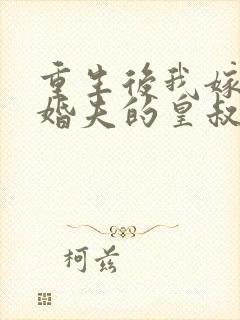 重生後我嫁
婚夫的皇叔
柯兹